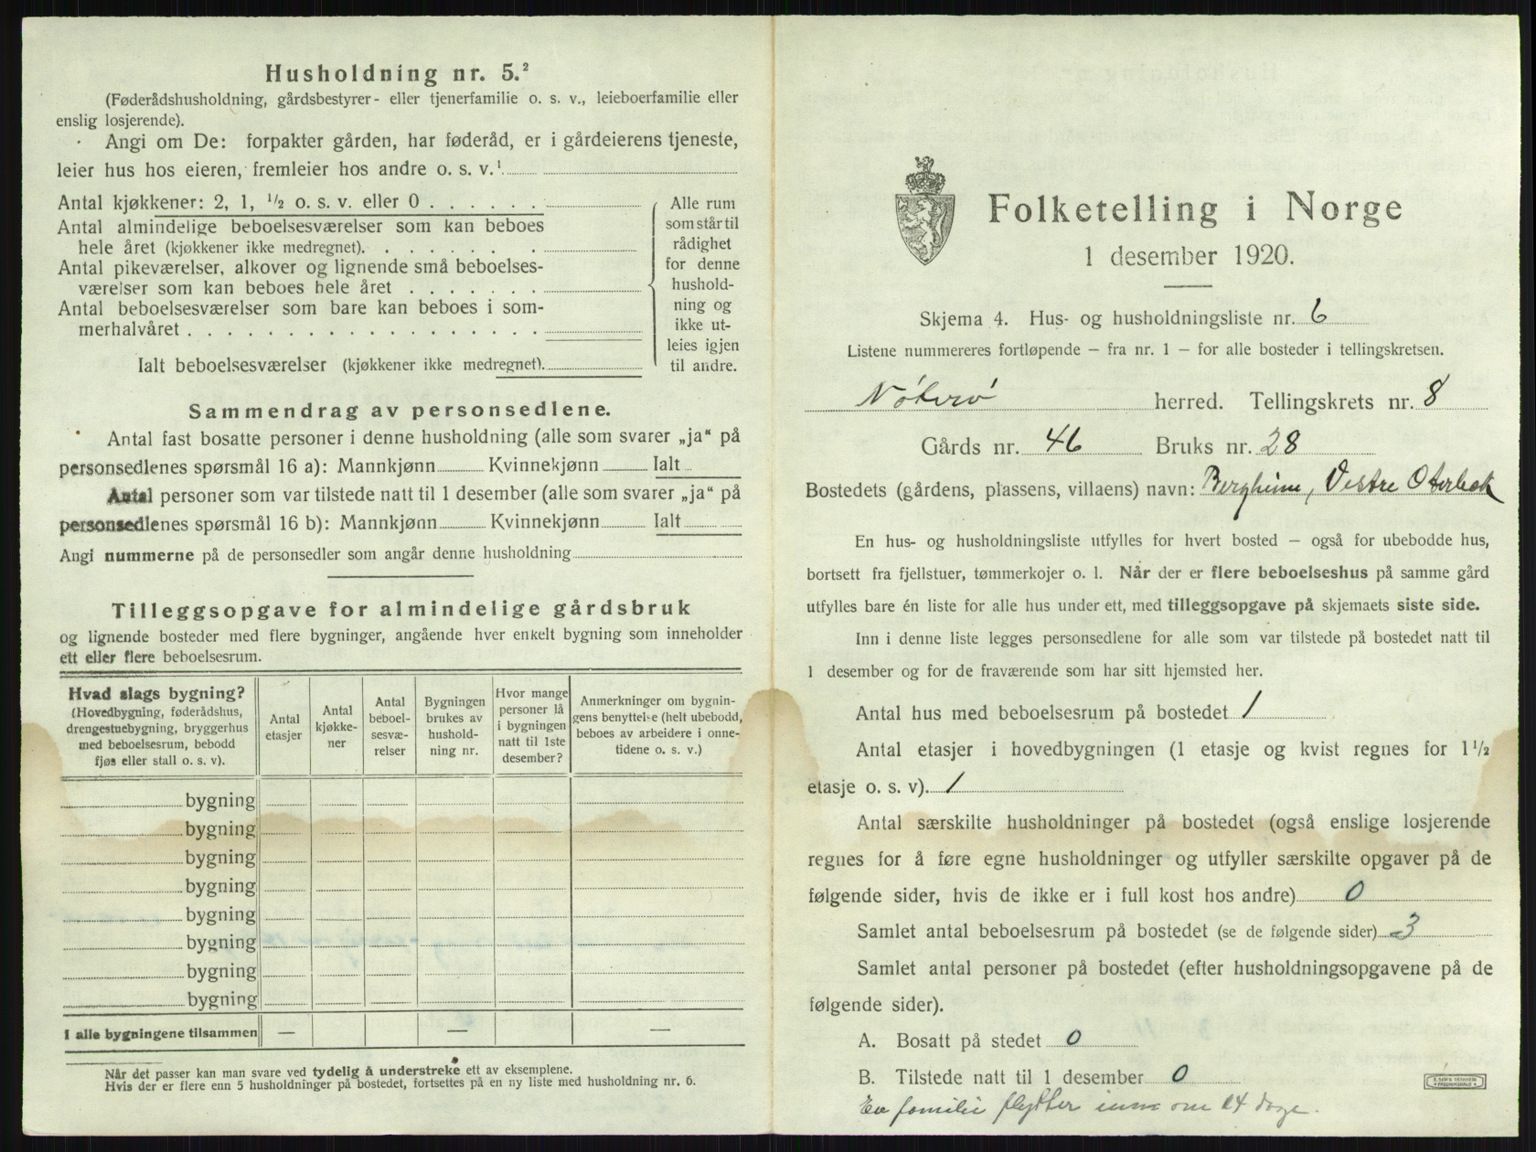 Husholdning nr. 5.²
(Føderådshusholdning, gårdsbestyrer- eller tjenerfamilie o. s. v., leieboerfamilie eller
enslig losjerende).
Angi om De: forpakter gården, har føderåd, er i gårdeierens tjeneste,
leier hus hos eieren, fremleier hos andre o. s. v.¹
Antal kjøkkener: 2, 1, ½ o. s. v. eller 0
Antal almindelige beboelsesværelser som kan beboes
hele året (kjøkkener ikke medregnet).
Antal pikeværelser, alkover og lignende små beboelses-
værelser som kan beboes hele året
Antal beboelsesværelser som bare kan beboes i som-
merhalvåret
Ialt beboelsesværelser (kjøkkener ikke medregnet).
Alle rum
som står til
rådighet
for denne
hushold-
ning og
ikke ut-
leies igjen
til andre.
Sammendrag av personsedlene.
Antal fast bosatte personer i denne husholdning (alle som svarer „ja" på
personsedlenes spørsmål 16 a): Mannkjønn Kvinnekjønn Ialt
Antal personer som var tilstede natt til 1 desember (alle som svarer „ja" på
personsedlenes spørsmål 16 b): Mannkjønn Kvinnekjønn Ialt
Angi nummerne på de personsedler som angår denne husholdning
Tilleggsopgave for almindelige gårdsbruk
og lignende bosteder med flere bygninger, angående hver enkelt bygning som inneholder
ett eller flere beboelsesrum.
Hvad slags bygning?
(Hovedbygning, føderådshus,
drengestuebygning, bryggerhus
med beboelsesrum, bebodd
fjøs eller stall o. s. v).
Antal
etasjer
Antal
kjøkke-
ner
Antal
beboel-
sesvæ-
relser
Bygningen
brukes av
hushold-
ning nr.
Hvor mange
personer lå
i bygningen
natt til 1ste
desember?
Anmerkninger om bygnin-
gens benyttelse (helt ubebodd,
beboes av arbeidere i onne-
tidene o. s. v.)
bygning
bygning
bygning
bygning
bygning
bygning
bygning
bygning
I alle bygningene tilsammen — — —
Når det passer kan man svare ved tydelig å understreke ett av eksemplene.
Hvis der er flere enn 5 husholdninger på bostedet, fortsettes på en ny liste med husholdning nr. 6.
Folketelling i Norge
1 desember 1920.
Skjema 4. Hus- og husholdningsliste nr. 6
Listene nummereres fortløpende — fra nr. 1 — for alle bosteder i tellingskretsen.
Nøterø herred. Tellingskrets nr. 8
Gårds nr. 46 Bruks nr. 28
Bostedets (gårdens, plassens, villaens) navn: Bergheim, Vestre Oterbek
En hus- og husholdningsliste utfylles for hvert bosted — også for ubebodde hus,
bortsett fra fjellstuer, tømmerkojer o. l. Når der er flere beboelseshus på samme gård
utfylles bare én liste for alle hus under ett, med tilleggsopgave på skjemaets siste side.
Inn i denne liste legges personsedlene for alle som var tilstede på bostedet natt til
1 desember og for de fraværende som har sitt hjemsted her.
Antal hus med beboelsesrum på bostedet 1
Antal etasjer i hovedbygningen (1 etasje og kvist regnes for 1½
etasje o. s. v). 1
Antal særskilte husholdninger på bostedet (også enslige losjerende
regnes for å føre egne husholdninger og utfyller særskilte opgaver på de
følgende sider, hvis de ikke er i full kost hos andre) 0
Samlet antal beboelsesrum på bostedet (se de følgende sider) 3
Samlet antal personer på bostedet (efter husholdningsopgavene på de
følgende sider).
A. Bosatt på stedet 0
B. Tilstede natt til 1 desember 0
En familie flytter inn om 14 dage.